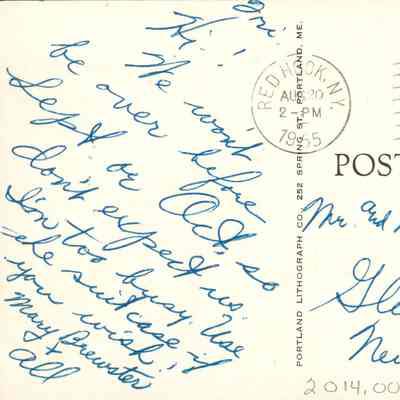 Fri.
Hi,
We won't
be over before
Sept or Oct. so
don't expect us.
I'm too busy. Use
the suitcase if
you wish,
Mary Brewster
+
all
RED HOOK, N.Y.
AUG 30
2 - PM
1955
PORTLAND LITHOGRAPH CO., 252 SPRING ST., PORTLAND, ME.
POST
Mr. and
2014.00